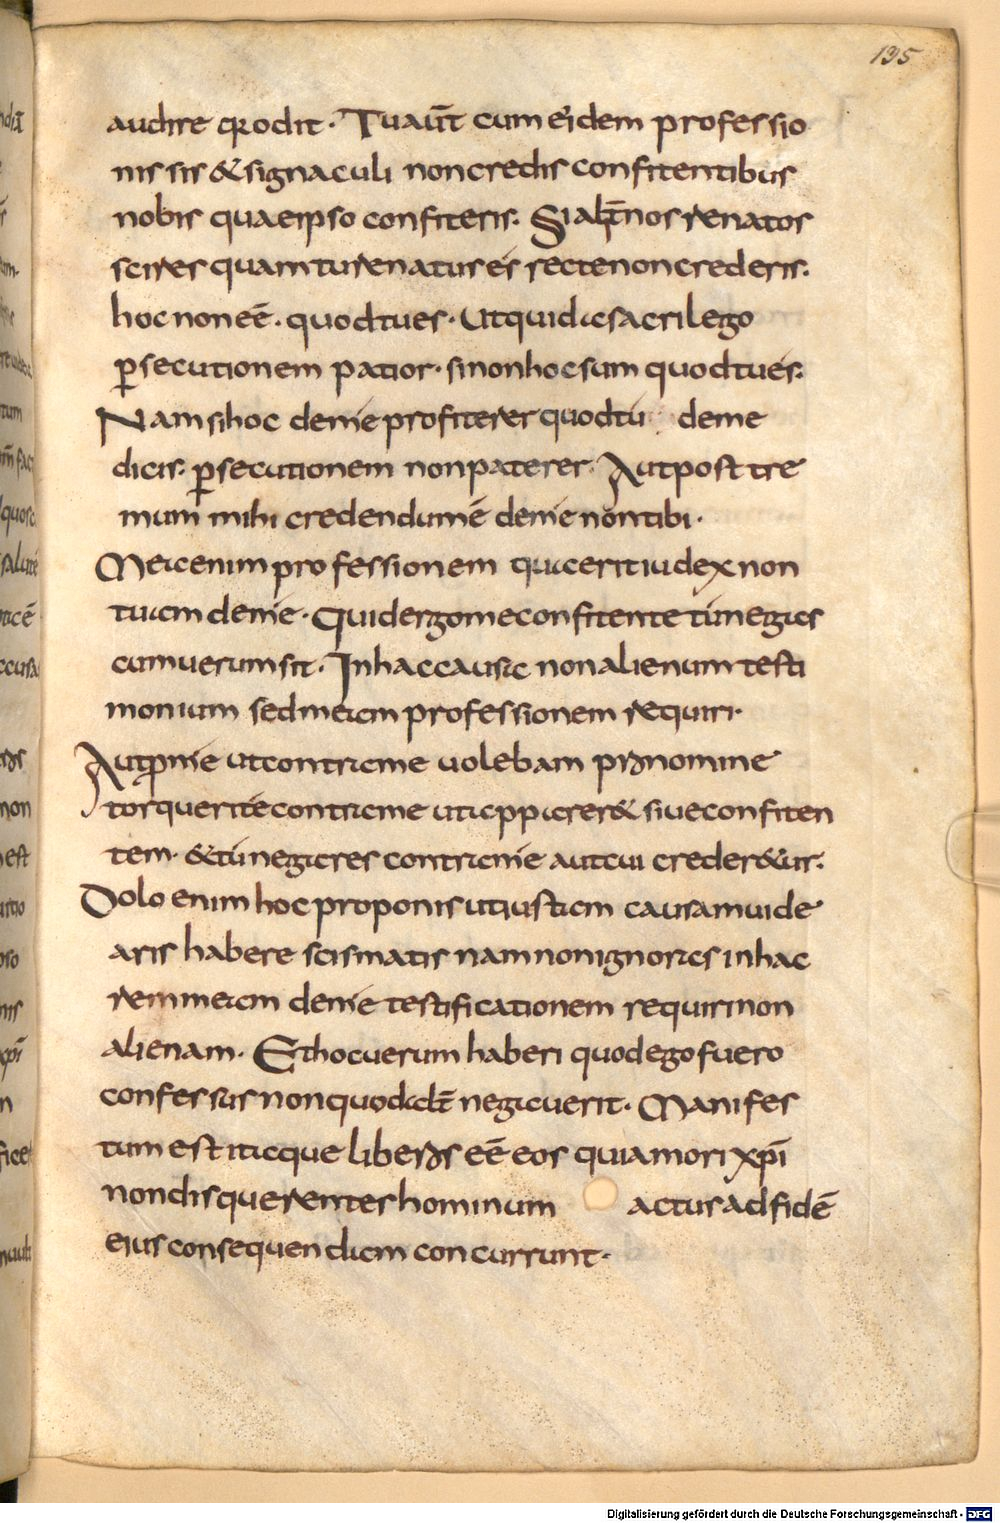 135
audire qrodit · Tu aut̄ cum eidem professio
nis sis & signaculi non credis confitentibus
nobis quae ipso confiteris. Si abt̄ nos renatos
scires quam tu renatus es recte non crederis.
hoc non eē · quod tu es · Ut quid a sacrilego
p̱secutionem patior · si non hoc sum quod tu es.
Nam si hoc de me profiterer quod tu de me
dicis. p̱secutionem non paterer. Aut postre
mum mihi credendum ē de me non tibi ·
Meacenim professionem quaerit iudex non
tuam de me · Quid ergo me confitente tu negas
cum uerum sit · In hac causa non alienum testi
monium sed meam professionem requiri ·
Aut p̱me ut contra me uolebam pro nomine
torqueri te contra me ut app arer& siue confiten
tem · & tu negares contra me aut cui creder&ur.
Dolo enim hoc proponis ut iustam causam uide
aris habere scismatis nam non ignoras in hac
rem meam de me testificationem requiri non
alienam · Et hoc uerum haberi quod ego fuero
confessus non quod alt̄ negauerit · Manifes
tum est itaque liberos eē eos qui amori xp̄i
non disquerentes hominum actus ad fidē
eius consequendam concurrunt ·
Digitalisierung gefördert durch die Deutsche Forschungsgemeinschaft - DFG